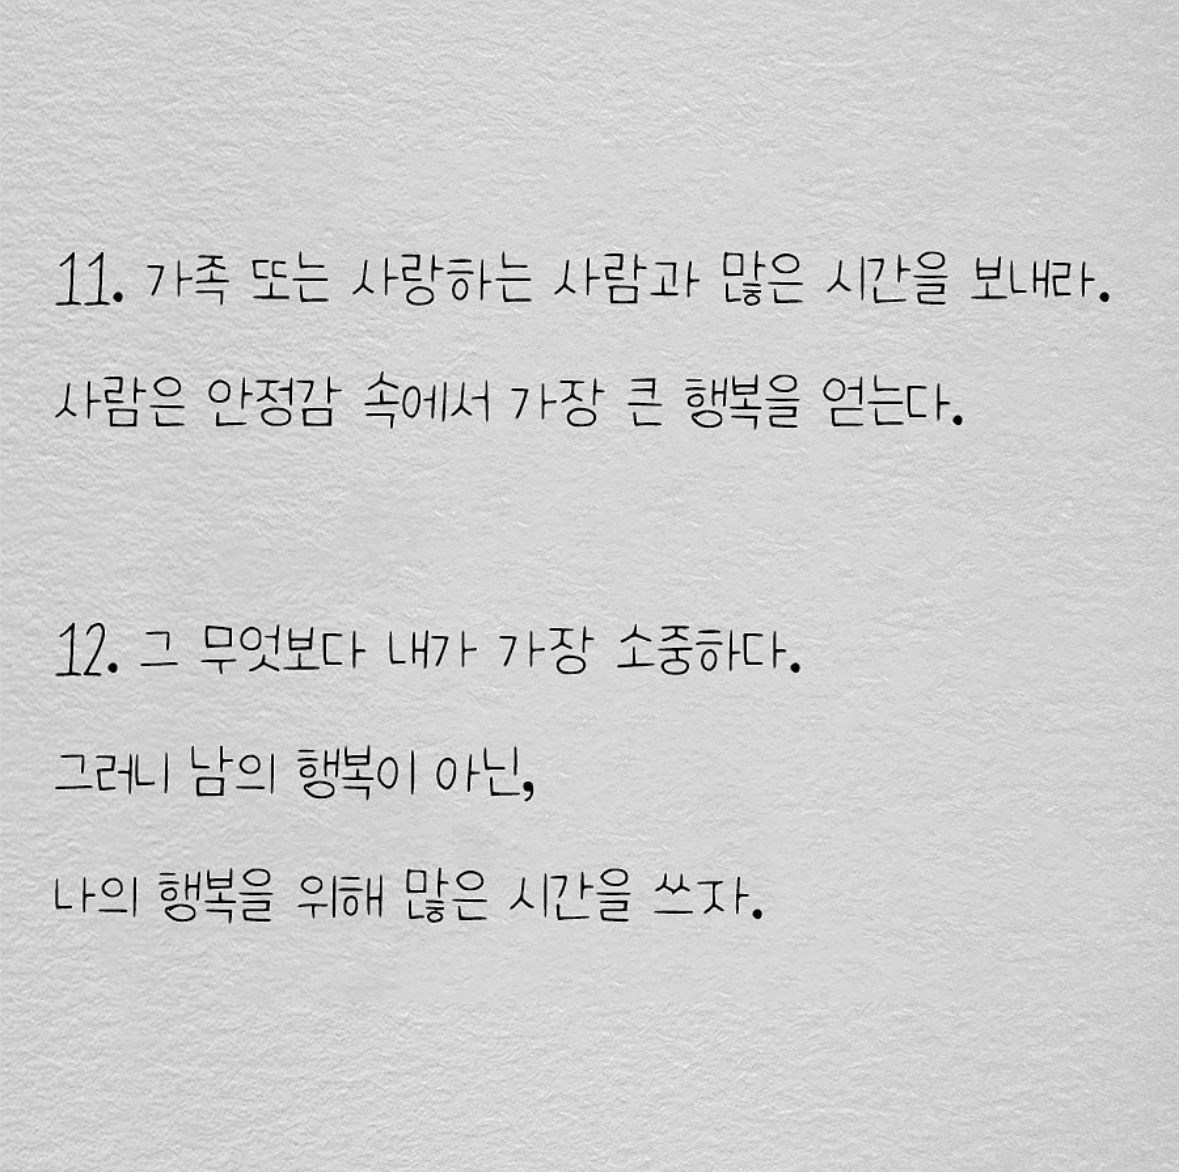 11. 가족 또는 사랑하는 사람과 많은 시간을 보내라.
사람은 안정감 속에서 가장 큰 행복을 얻는다.
12. 그 무엇보다 내가 가장 소중하다.
그러니 남의 행복이 아닌,
나의 행복을 위해 많은 시간을 쓰자.